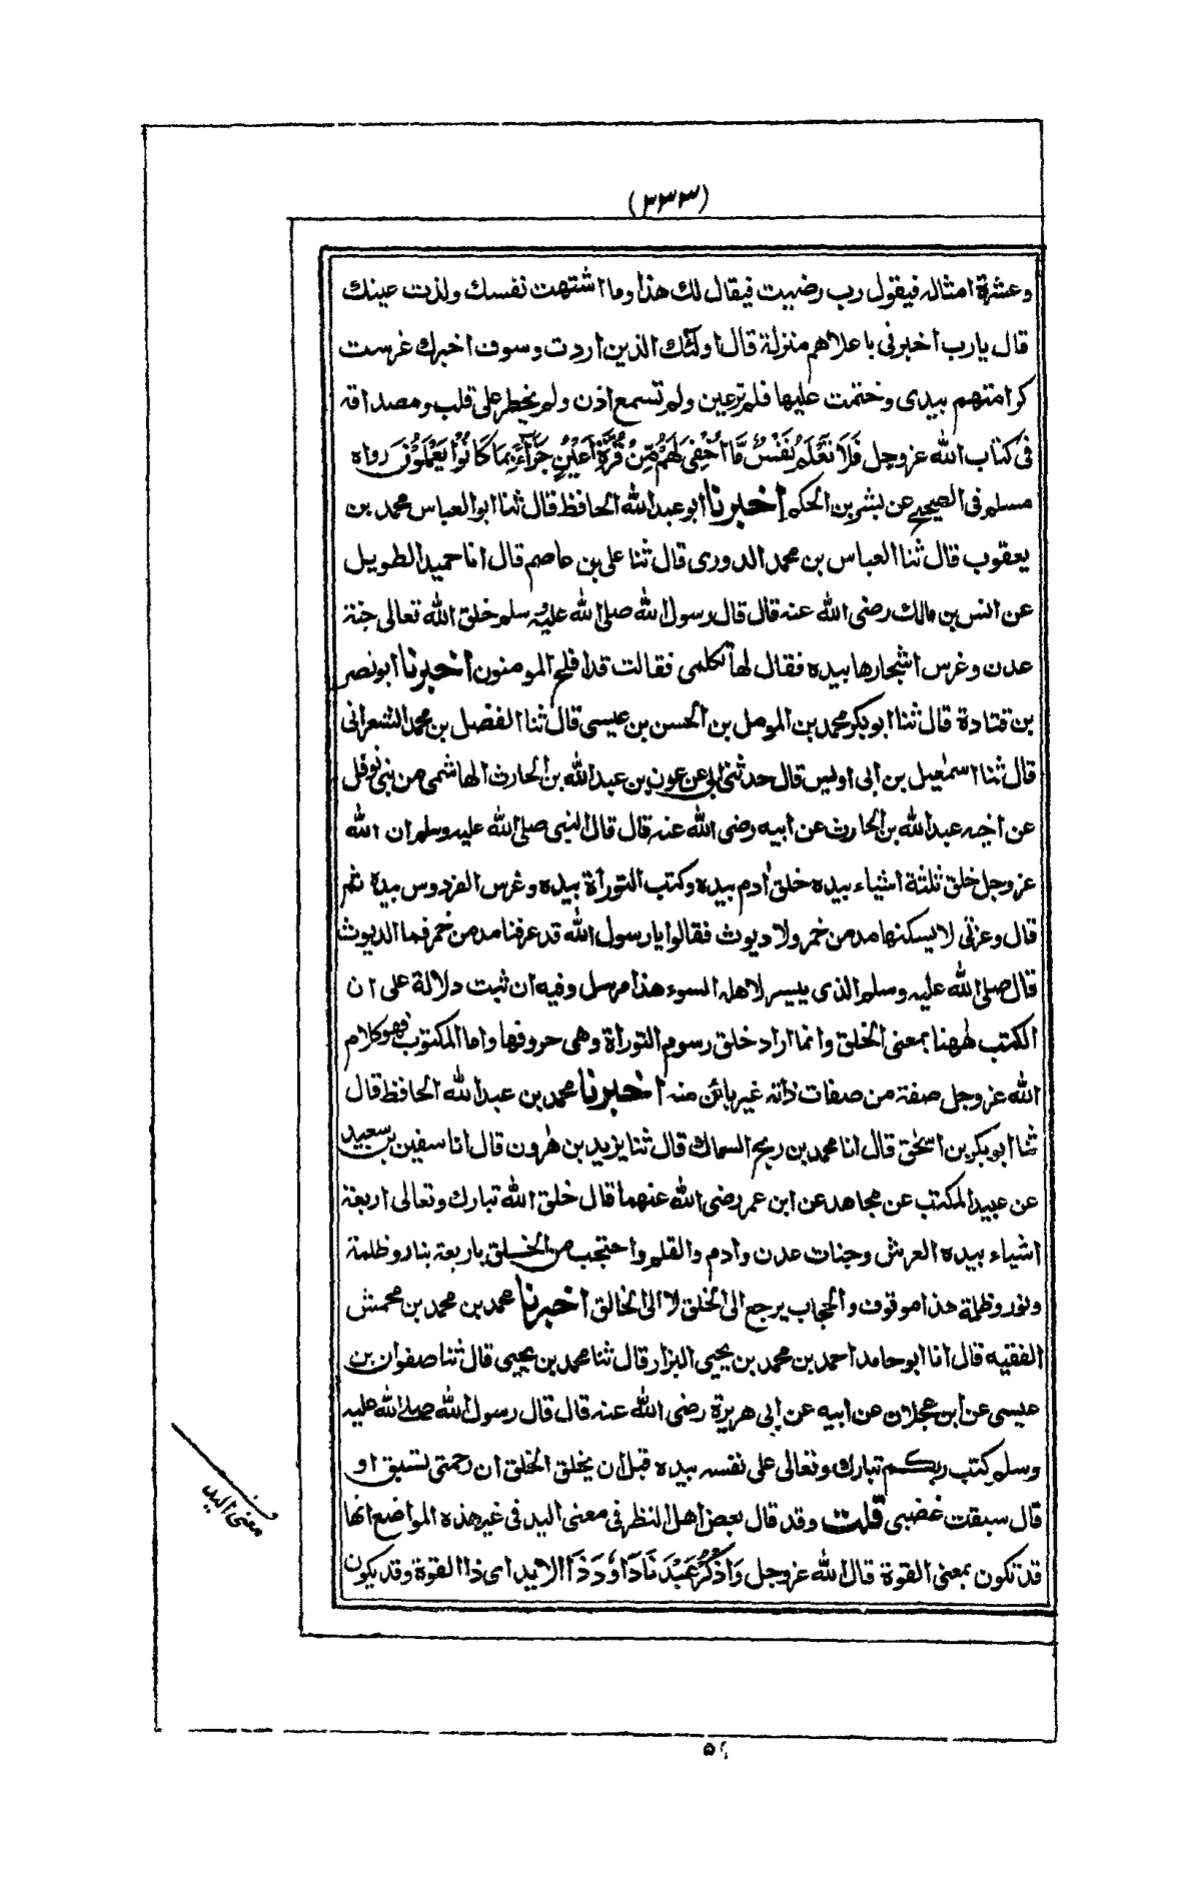 (٢٣٣)
وعشرة امثاله فيقول رب رضيت فيقال لك هذا وما اشتهت نفسك ولذت عينك
قال يارب اخبرنى باعلاهم منزلة قال اولئك الذين اردت وسوف اخبرك غرست
كرامتهم بيدى وختمت عليها فلم ترعين ولم تسمع اذن ولم يخطر على قلب ومصداقه
فى كتاب الله عزوجل فَلَا تَعْلَمُ نَفْسٌ مَّا اُخْفِىَ لَهُمْ مِّنْ قُرَّةِ اَعْيُنٍ جَزَآءً بِمَا كَانُوْا يَعْمَلُوْنَ رواه
مسلم فى الصحيح عن بشر بن الحكم اخبرنا ابو عبد الله الحافظ قال ثنا ابو العباس محمد بن
يعقوب قال ثنا العباس بن محمد الدورى قال ثنا على بن عاصم قال انا حميد الطويل
عن انس بن مالك رضى الله عنه قال قال رسول الله صلى الله عليه وسلم خلق الله تعالى جنة
عدن وغرس اشجارها بيده فقال لها تكلمى فقالت قد افلح المومنون اخبرنا ابو نصر
بن قتادة قال ثنا ابو بكر محمد بن المومل بن الحسن بن عيسى قال ثنا الفضل بن محمد الشعرانى
قال ثنا اسمٰعيل بن ابى اويس قال حدثنى ابى عن عون بن عبد الله بن الحارث الهاشمى من بنى نوفل
عن اخيه عبد الله بن الحارث عن ابيه رضى الله عنه قال قال النبى صلى الله عليه وسلم ان الله
عزوجل خلق ثلثة اشياء بيده خلق اٰدم بيده وكتب التوراة بيده وغرس الفردوس بيده ثم
قال وعزتى لا يسكنها مدمن خمر ولا ديوث فقالوا يارسول الله قد عرفنا مدمن خمر فما الديوث
قال صلى الله عليه وسلم الذى ييسر لاهله السوء هذا مرسل وفيه ان ثبت دلالة على ان
الكتب هٰهنا بمعنى الخلق وانما اراد خلق رسوم التوراة وهى حروفها واما المكتوب فهو كلام
الله عزوجل صفة من صفات ذاته غير بائن منه اخبرنا محمد بن عبد الله الحافظ قال
ثنا ابو بكر بن اسحٰق قال انا محمد بن ربح السماك قال ثنا يزيد بن هٰرون قال انا سفين بن سعيد
عن عبيد المكتب عن مجاهد عن ابن عمر رضى الله عنهما قال خلق الله تبارك وتعالى اربعة
اشياء بيده العرش وجنات عدن واٰدم والقلم واحتجب من الخلق باربعة بنار وظلمة
ونور وظلمة هذا موقوف والحجاب يرجع الى الخلق لا الى الخالق اخبرنا محمد بن محمد بن محمش
الفقيه قال انا ابو حامد احمد بن محمد بن يحيى البزار قال ثنا محمد بن يحيى قال ثنا صفوان بن
عيسى عن ابن عجلان عن ابيه عن ابى هريرة رضى الله عنه قال قال رسول الله صلى الله عليه
وسلم كتب ربكم تبارك وتعالى على نفسه بيده قبل ان يخلق الخلق ان رحمتى تسبق او
قال سبقت غضبى قلت وقد قال بعض اهل النظر فى معنى اليد فى غير هذه المواضع انها
قد تكون بمعنى القوة قال الله عزوجل وَاذْكُرْ عَبْدَنَا دَاوٗدَ ذَا الْاَيْدِ اى ذا القوة وقد يكون
معنى اليد